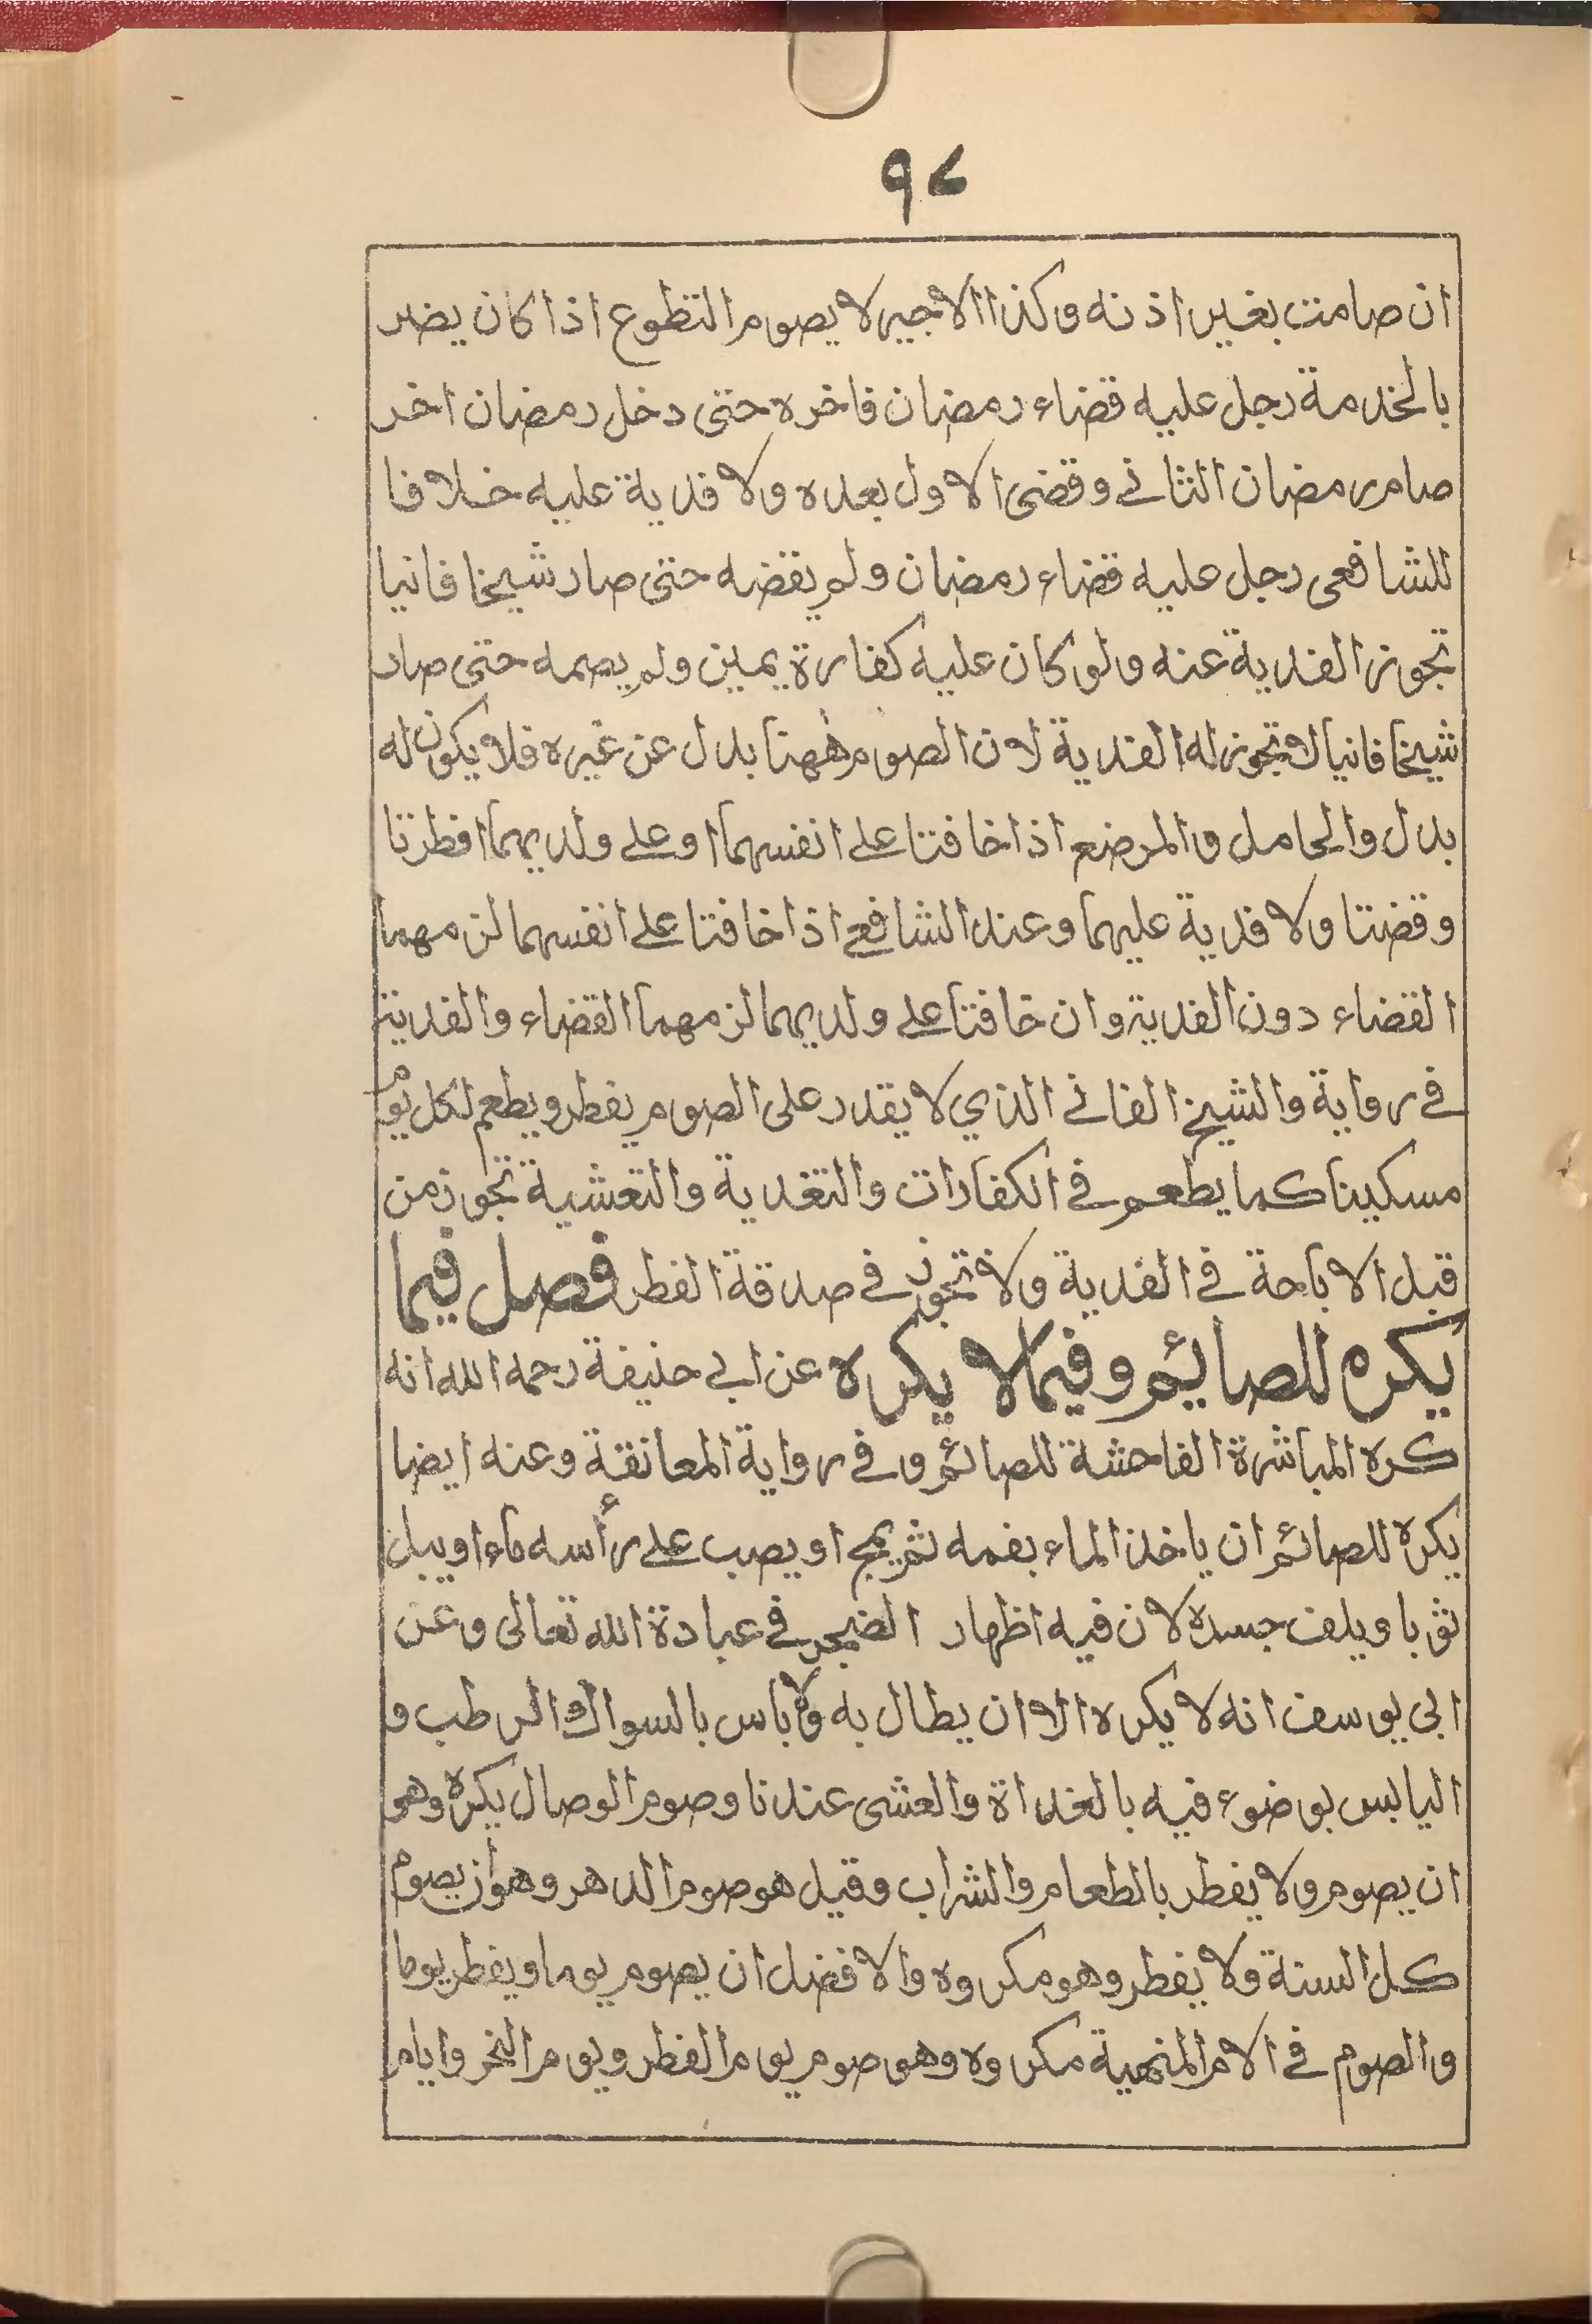 ٩٧
ان صامت بغير اذنه وكذا الاجير لا يصوم التطوع اذا كان يضر
بالخدمة رجل عليه قضاء رمضان فاخره حتى دخل رمضان اخر
صام رمضان الثاني وقضى الاول بعده ولا فدية عليه خلافا
للشافعى رجل عليه قضاء رمضان ولم يقضه حتى صار شيخا فانيا
تجوز الفدية عنه ولو كان عليه كفارة يمين ولم يصمه حتى صار
شيخا فانيا لا تجوز له الفدية لان الصوم ههنا بدل عن غيره فلا يكون له
بدل والحامل والمرضع اذا خافتا على انفسهما او على ولديهما افطرتا
وقضتا ولا فدية عليهما وعند الشافعي اذا خافتا على انفسهما لزمهما
القضاء دون الفدية وان خافتا على ولديهما لزمهما القضاء والفدية
في رواية والشيخ الفاني الذي لا يقدر على الصوم يفطر ويطعم لكل يوم
مسكينا كما يطعم في الكفارات والتغدية والتعشية تجوز من
قبل الاباحة في الفدية ولا تجوز في صدقة الفطر فصل فيما
يكره للصائم وفيما لا يكره عن ابي حنيفة رحمه الله انه
كره المباشرة الفاحشة للصائم وفي رواية المعانقة وعنه ايضا
يكره للصائم ان ياخذ الماء بفمه ثم يمج او يصب على رأسه ماء او يبل
ثوبا ويلف جسده لان فيه اظهار الضجر في عبادة الله تعالى وعن
ابى يوسف انه لا يكره الا ان يطال به ولا باس بالسواك الرطب و
اليابس بوضوء فيه بالغداة والعشى عندنا وصوم الوصال يكره وهو
ان يصوم ولا يفطر بالطعام والشراب وقيل هو صوم الدهر وهو ان يصوم
كل السنة ولا يفطر وهو مكروه والافضل ان يصوم يوما ويفطر يوما
والصوم في الام المنهية مكروه وهو صوم يوم الفطر ويوم النحر وايام